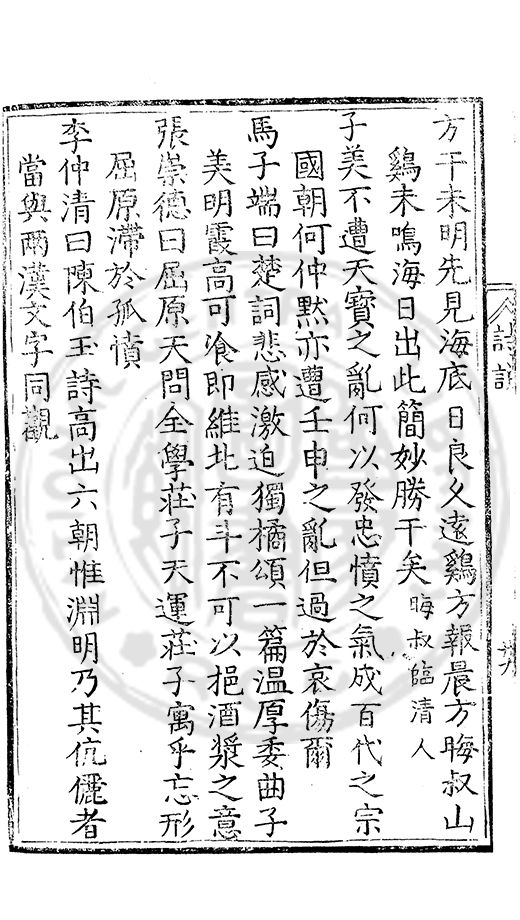 方干未明先見海底日良久遠鷄方報晨方晦叔山
鷄未鳴海日出此簡妙勝干矣晦叔臨清人
子美不遭天寶之亂何以發忠憤之氣成百代之宗
國朝何仲默亦遭壬申之亂但過於哀傷爾
馬子端曰楚詞悲感激迫獨橘頌一篇溫厚委曲子
美明霞高可飡即維北有斗不可以挹酒漿之意
張崇德曰屈原天問全學莊子天運莊子寓乎忘形
屈原滯於孤憤
李仲清曰陳伯玉詩高出六朝惟淵明乃其伉儷者
當與兩漢文字同觀